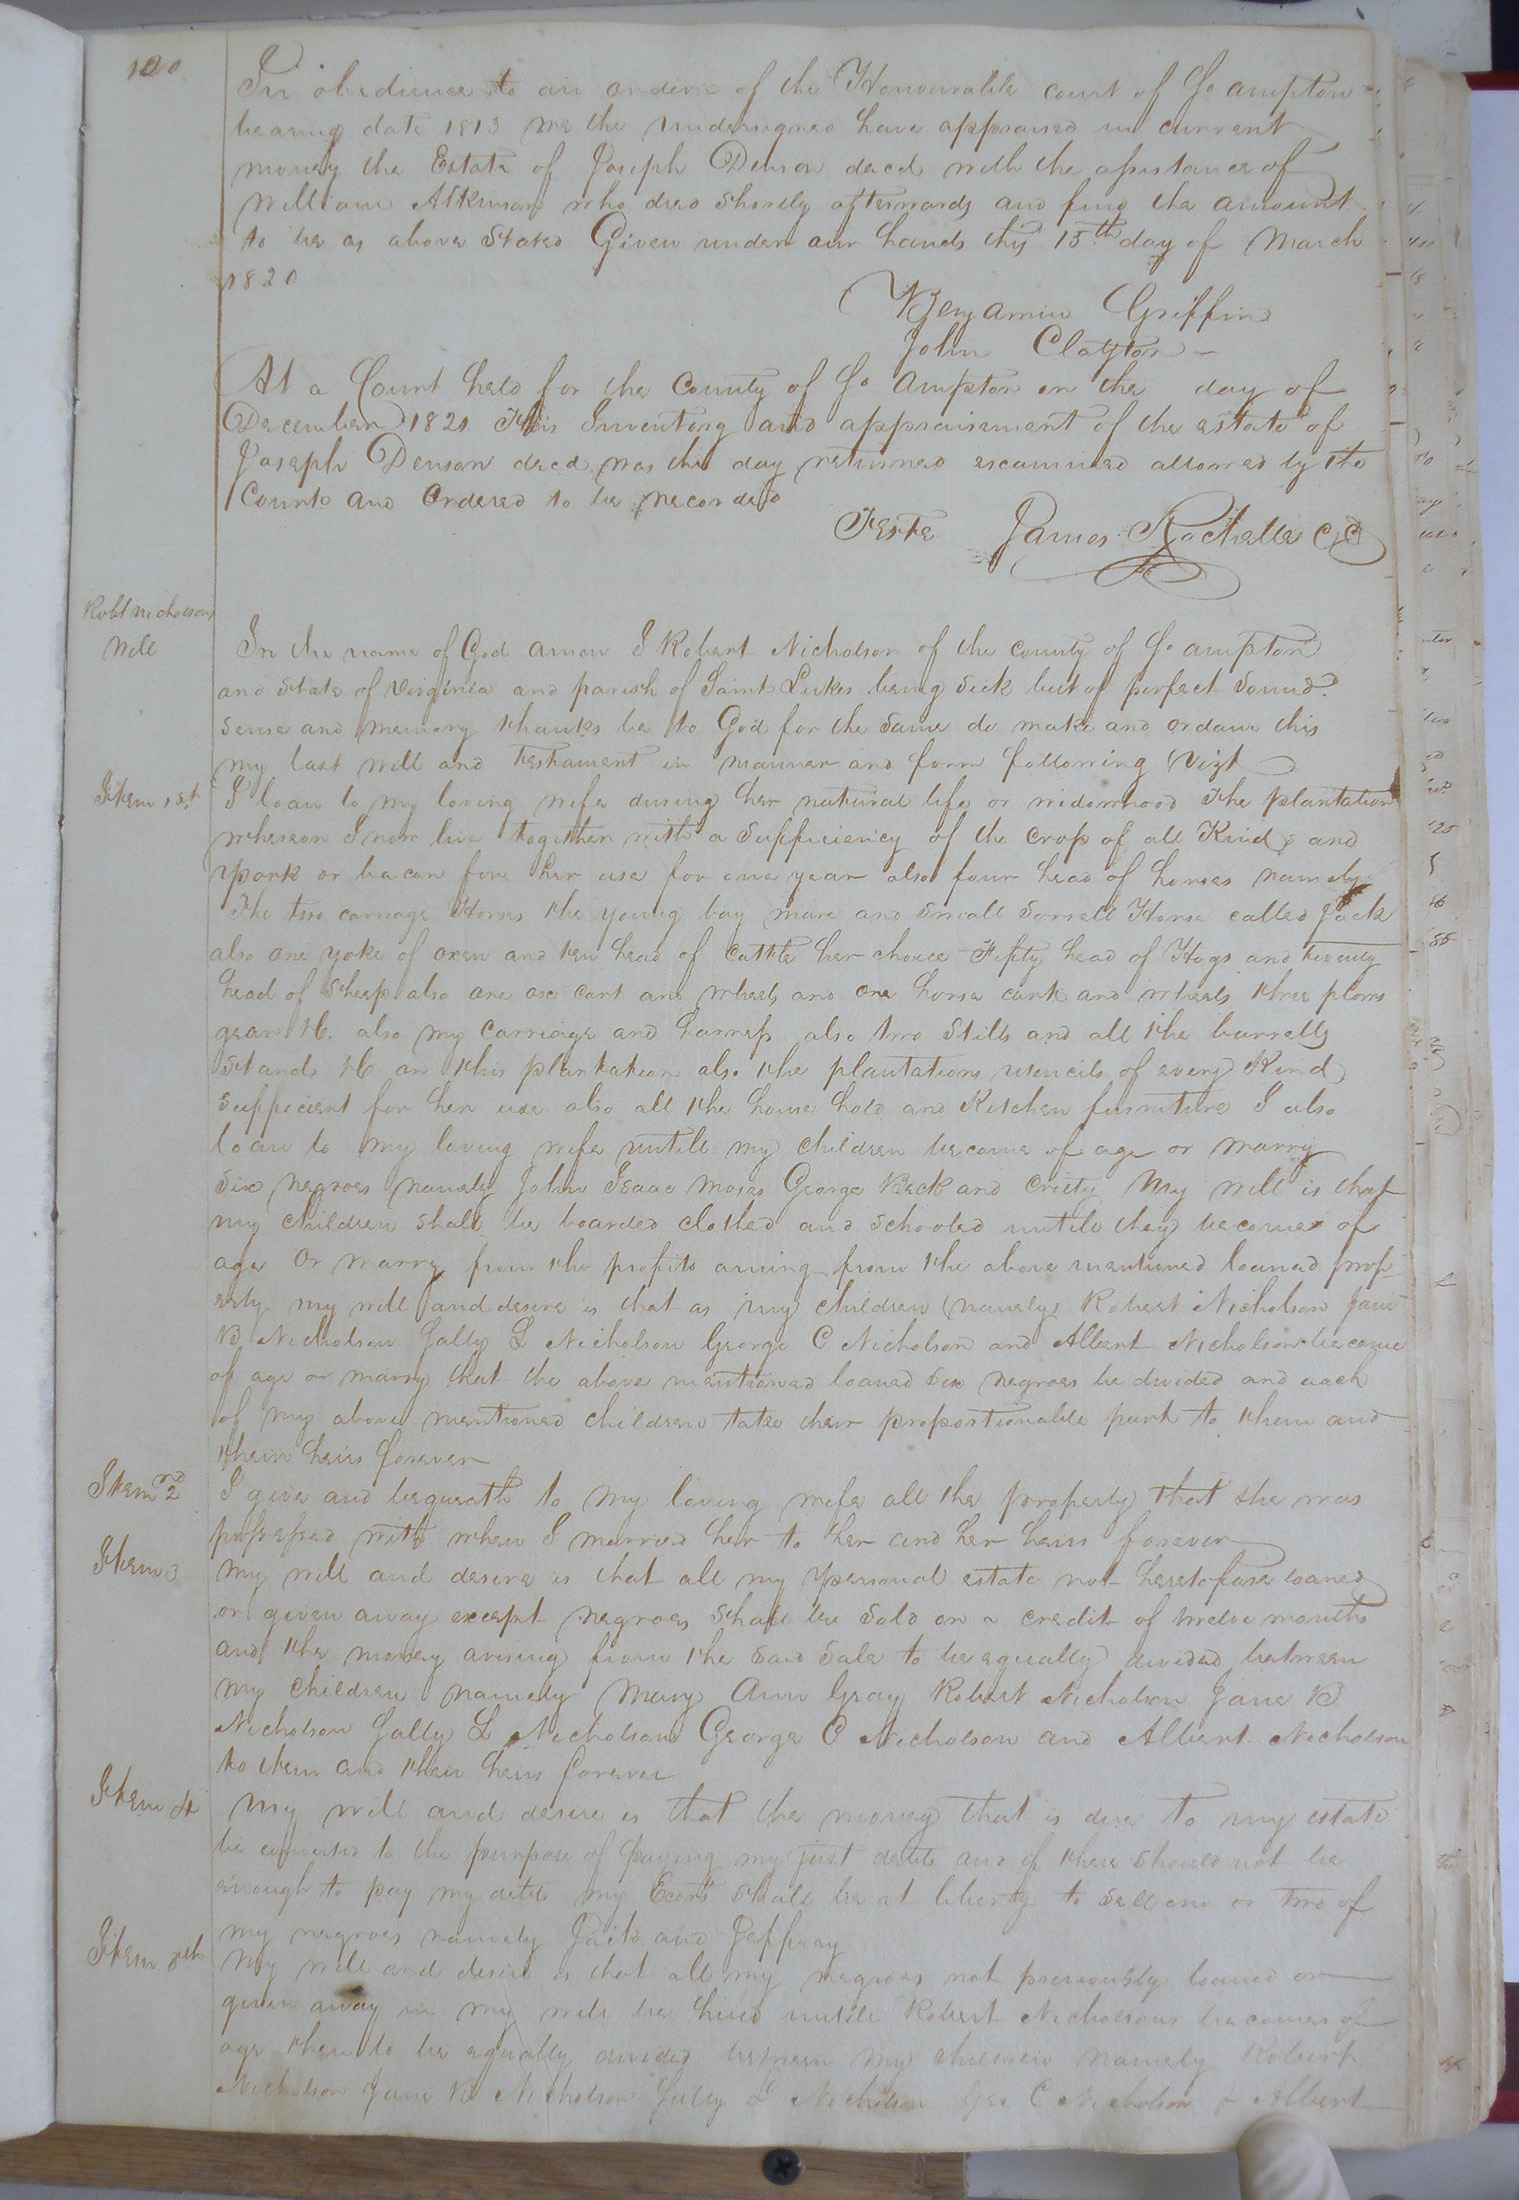 120
In obedience to an order of the Honourable court of So ampton
bearing date 1813 we the undersigned have appraised in current
money the Estate of Joseph Denson decd with the assistance of
William Atkinson who died shortly afterwards and find the amount
to be as above stated Given under our hands this 15th day of March
1820
Benjamin Griffin
John Clayton
At a Court held for the County of So ampton on the day of
December 1820 This Inventory and appraisement of the estate of
Joseph Denson decd was this day returned examined allowed by the
Court and Ordered to be recorded
Teste James Rochelle C C
Robt Nicholsons
Will
In the name of God amen I Robert Nicholson of the county of So ampton
and State of Virginia and parish of Saint Lukes being Sick but of perfect Sound
sense and memory thanks be to God for the same do make and ordain this
my last will and testament in manner and form following Vizt
Item 1st I loan to my loving wife during her natural life or widowhood the plantation
whereon I now live together with a Sufficiency of the crop of all Kinds and
pork or bacon for her use for one year also four head of horses namely
The two carriage Horses the young bay mare and small sorrell Horse called Jack
also one yoke of oxen and ten head of Cattle her choice Fifty head of Hogs and twenty
head of sheep also one ox cart and wheels and one horse cart and wheels three plows
gear &c. also my carriage and harness also two Stills and all the barrells
Stands &c on this plantation also the plantations utencils of every Kind
sufficient for her use also all the house hold and Kitchen furniture I also
loan to my loving wife untill my children become of age or marry
six negroes namely John Isaac Moses George Beck and Cristy My will is that
my children shall be boarded clothed and schooled untill they become of
age Or marry from the profits arising from the above mentioned loaned prop
erty my will and desire is that as my children (namely) Robert Nicholson Jane
B Nicholson Sally L Nicholson George C Nicholson and Albert Nicholson become
of age or marry that the above mentioned loaned six negroes be divided and each
of my above mentioned children take their proportionable part to them and
their heirs forever
Item 2nd I give and bequeath to my loving wife all the property that she was
possessed with when I married her to her and her heirs forever
Item 3 my will and desire is that all my personal estate not heretofore loaned
or given away except negroes shall be sold on a credit of twelve months
and the money arising from the said sale to be equally divided between
my children namely Mary Ann Gray Robert Nicholson Jane B
Nicholson Sally L Nicholson George C Nicholson and Albert Nicholson
to them and their heirs forever
Item 4 My will and desire is that the money that is due to my estate
be converted to the purpose of paying my just debts and if there should not be
enough to pay my debts my Exors shall be at liberty to sell one or two of
my negroes namely Jack and Jeffrey
Item 5th My will and desire is that all my negroes not previously loaned or
given away in my will be hired untill Robert Nicholsons becomes of
age then to be equally divided between my children namely Robert
Nicholson Jane B Nicholson Sally L Nicholson Geo. C Nicholson & Albert